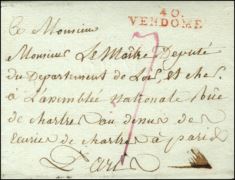 40.
VENDÔME
A Monsieur
Monsieur Le Maître Député
du Departement de Loir et cher
à L'assemblée Nationale Rue
de chartre au dessus de
Ecurie de chartre à paris
Paris